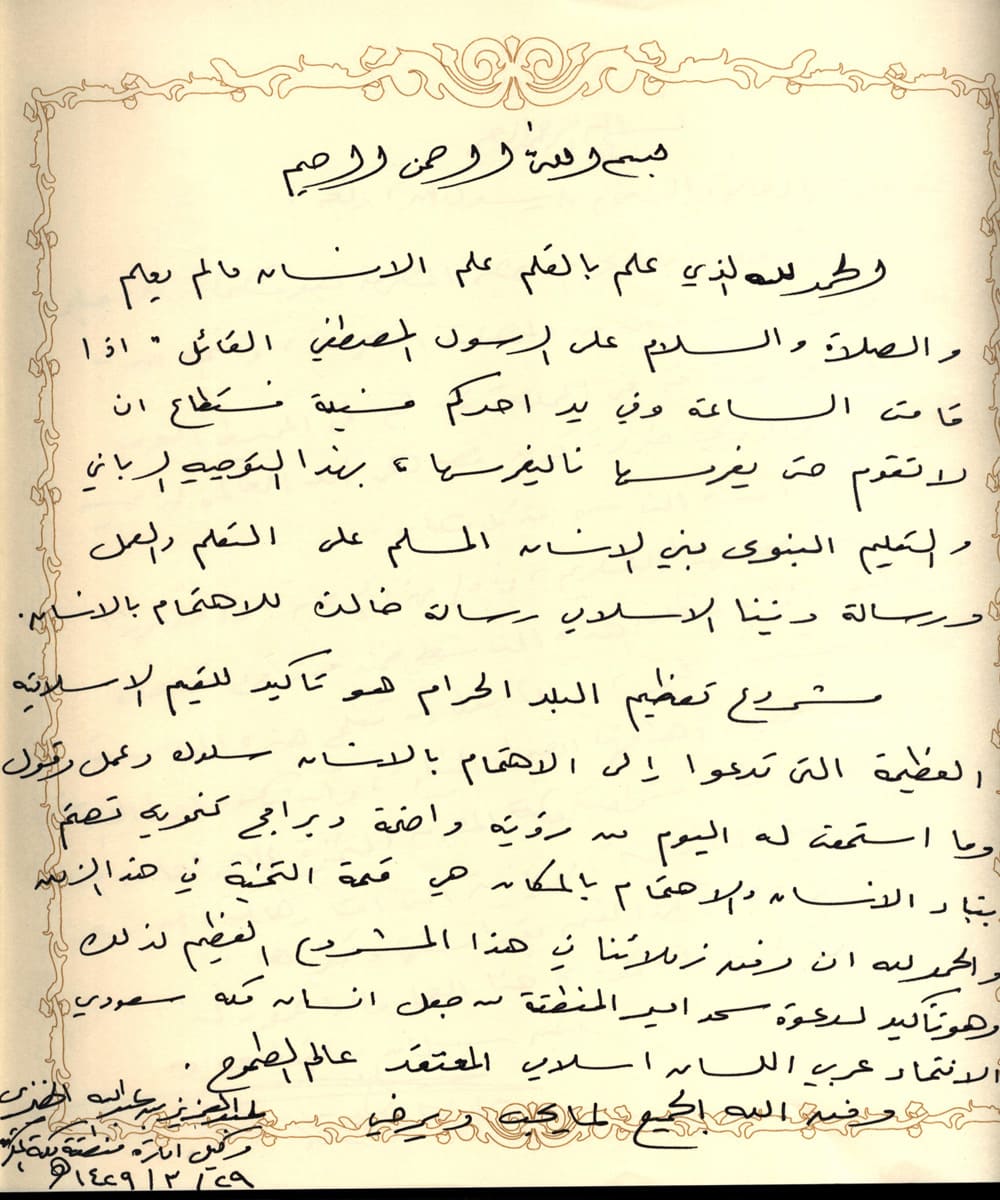 بسم الله الرحمن الرحيم
الحمد لله الذي علم بالقلم علم الانسان مالم يعلم
والصلاة والسلام على الرسول المصطفى القائل " اذا
قامت الساعة وفي يد احدكم فسيلة فستطاع ان
لا تقوم حتى يغرسها فاليغرسها " بهذا التوجيه الرباني
والتعليم النبوى بني الانسان المسلم على التعلم والعمل
ورسالة ديننا الاسلامي رسالة خالدة للاهتمام بالانسان .
مشروع تعظيم البلد الحرام هو تاكيد للقيم الاسلامية
العظيمة التي تدعوا إلى الاهتمام بالانسان سلوك وعمل وقول
وما استمعت له اليوم من رؤية واضحة وبرامج تنموية تهتم
ببناء الانسان والاهتمام بالمكان هي قمة التنمية في هذا الزمن
والحمد لله ان وفق زملائنا في هذا المشروع العظيم لذلك
وهو تأكيد لدعوة سمو امير المنطقة من جعل انسان مكه سعودي
الانتماء عربي اللسان اسلامي المعتقد عالم الطموح .
وفق الله الجميع لما يحب ويرضى
عبدالعزيز بن عبدالله الخضيري
وكيل امارة منطقة مكة المكرمة
٢٩ / ٣ / ١٤٢٩هـ